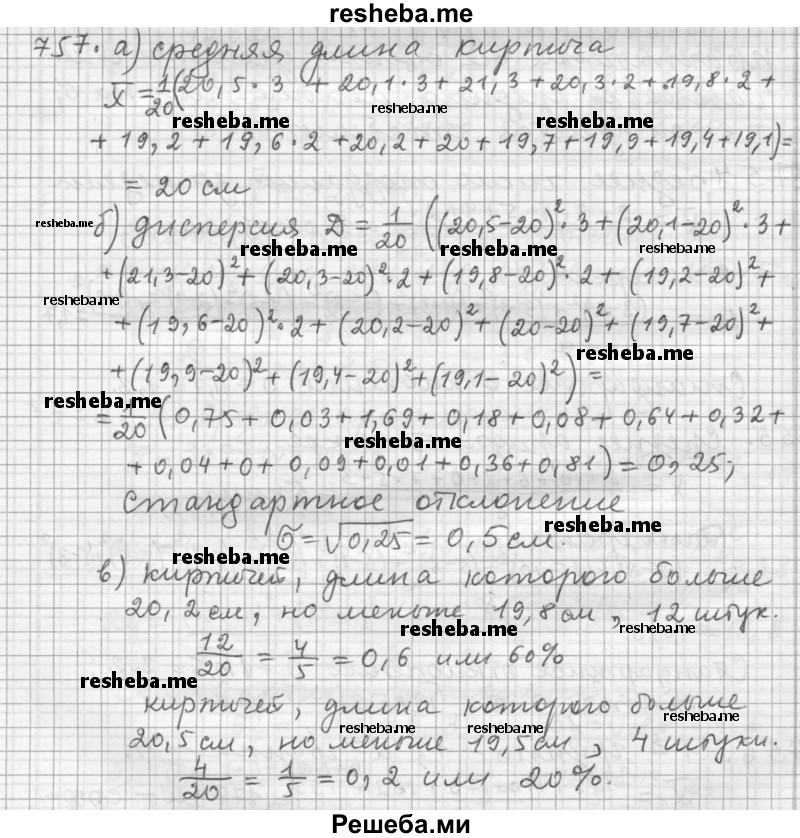 resheba.me
757. а) средняя длина кирпича
x̄ = 1/20 (20,5·3 + 20,1·3 + 21,3 + 20,3·2 + 19,8·2 +
resheba.me
+ 19,2 + 19,6·2 + 20,2 + 20 + 19,7 + 19,9 + 19,4 + 19,1) =
resheba.me resheba.me
= 20 см
resheba.me
б) дисперсия D = 1/20 ((20,5-20)²·3 + (20,1-20)²·3 +
resheba.me resheba.me resheba.me
+ (21,3-20)² + (20,3-20)²·2 + (19,8-20)²·2 + (19,2-20)² +
resheba.me
+ (19,6-20)²·2 + (20,2-20)² + (20-20)² + (19,7-20)² +
resheba.me
+ (19,9-20)² + (19,4-20)² + (19,1-20)²) =
resheba.me
= 1/20 (0,75 + 0,03 + 1,69 + 0,18 + 0,08 + 0,64 + 0,32 +
resheba.me
+ 0,04 + 0 + 0,09 + 0,01 + 0,36 + 0,81) = 0,25;
стандартное отклонение
resheba.me
σ = √0,25 = 0,5 см.
resheba.me
в) кирпичей, длина которого больше
20,2 см, но меньше 19,8 см, 12 штук.
resheba.me resheba.me
12/20 = 4/5 = 0,6 или 60%
resheba.me
кирпичей, длина которого больше
resheba.me resheba.me resheba.me
20,5 см, но меньше 19,5 см, 4 штуки.
4/20 = 1/5 = 0,2 или 20%.
Решеба.ми